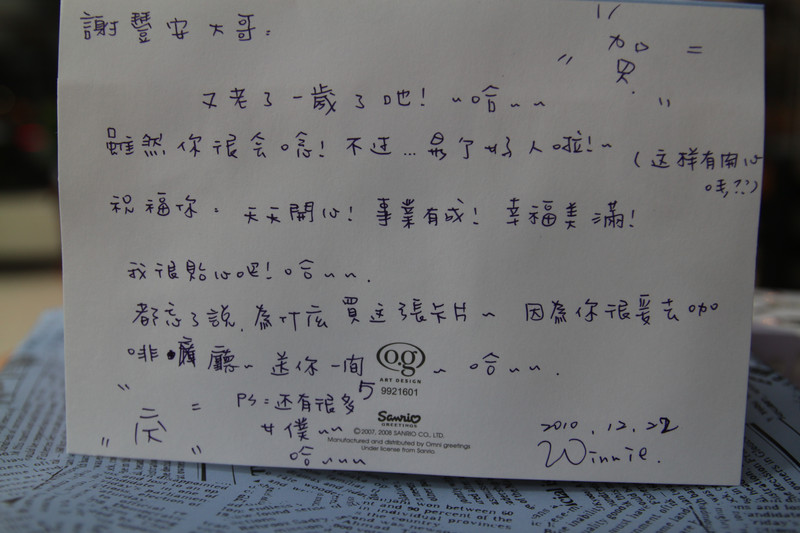 謝豐安大哥：
"賀"＝
又老了一歲了吧！~哈~~
雖然你很会唸！不过...是个好人啦！~
（这样有開心
嗎，??）
祝福你：天天開心！事業有成！幸福美滿！
我很貼心吧！哈~~.
都忘了說，為什庅買这張卡片~ 因為你很愛去咖
啡廳~ 送你一間~ 哈~~.
og
ART DESIGN
9921601
"慶"＝
PS：还有很多
女僕~~
哈~~~
Sanrio
GREETINGS
©2007, 2008 SANRIO CO., LTD.
Manufactured and distributed by Omni greetings
Under license from Sanrio
2010.12.22
Winnie.